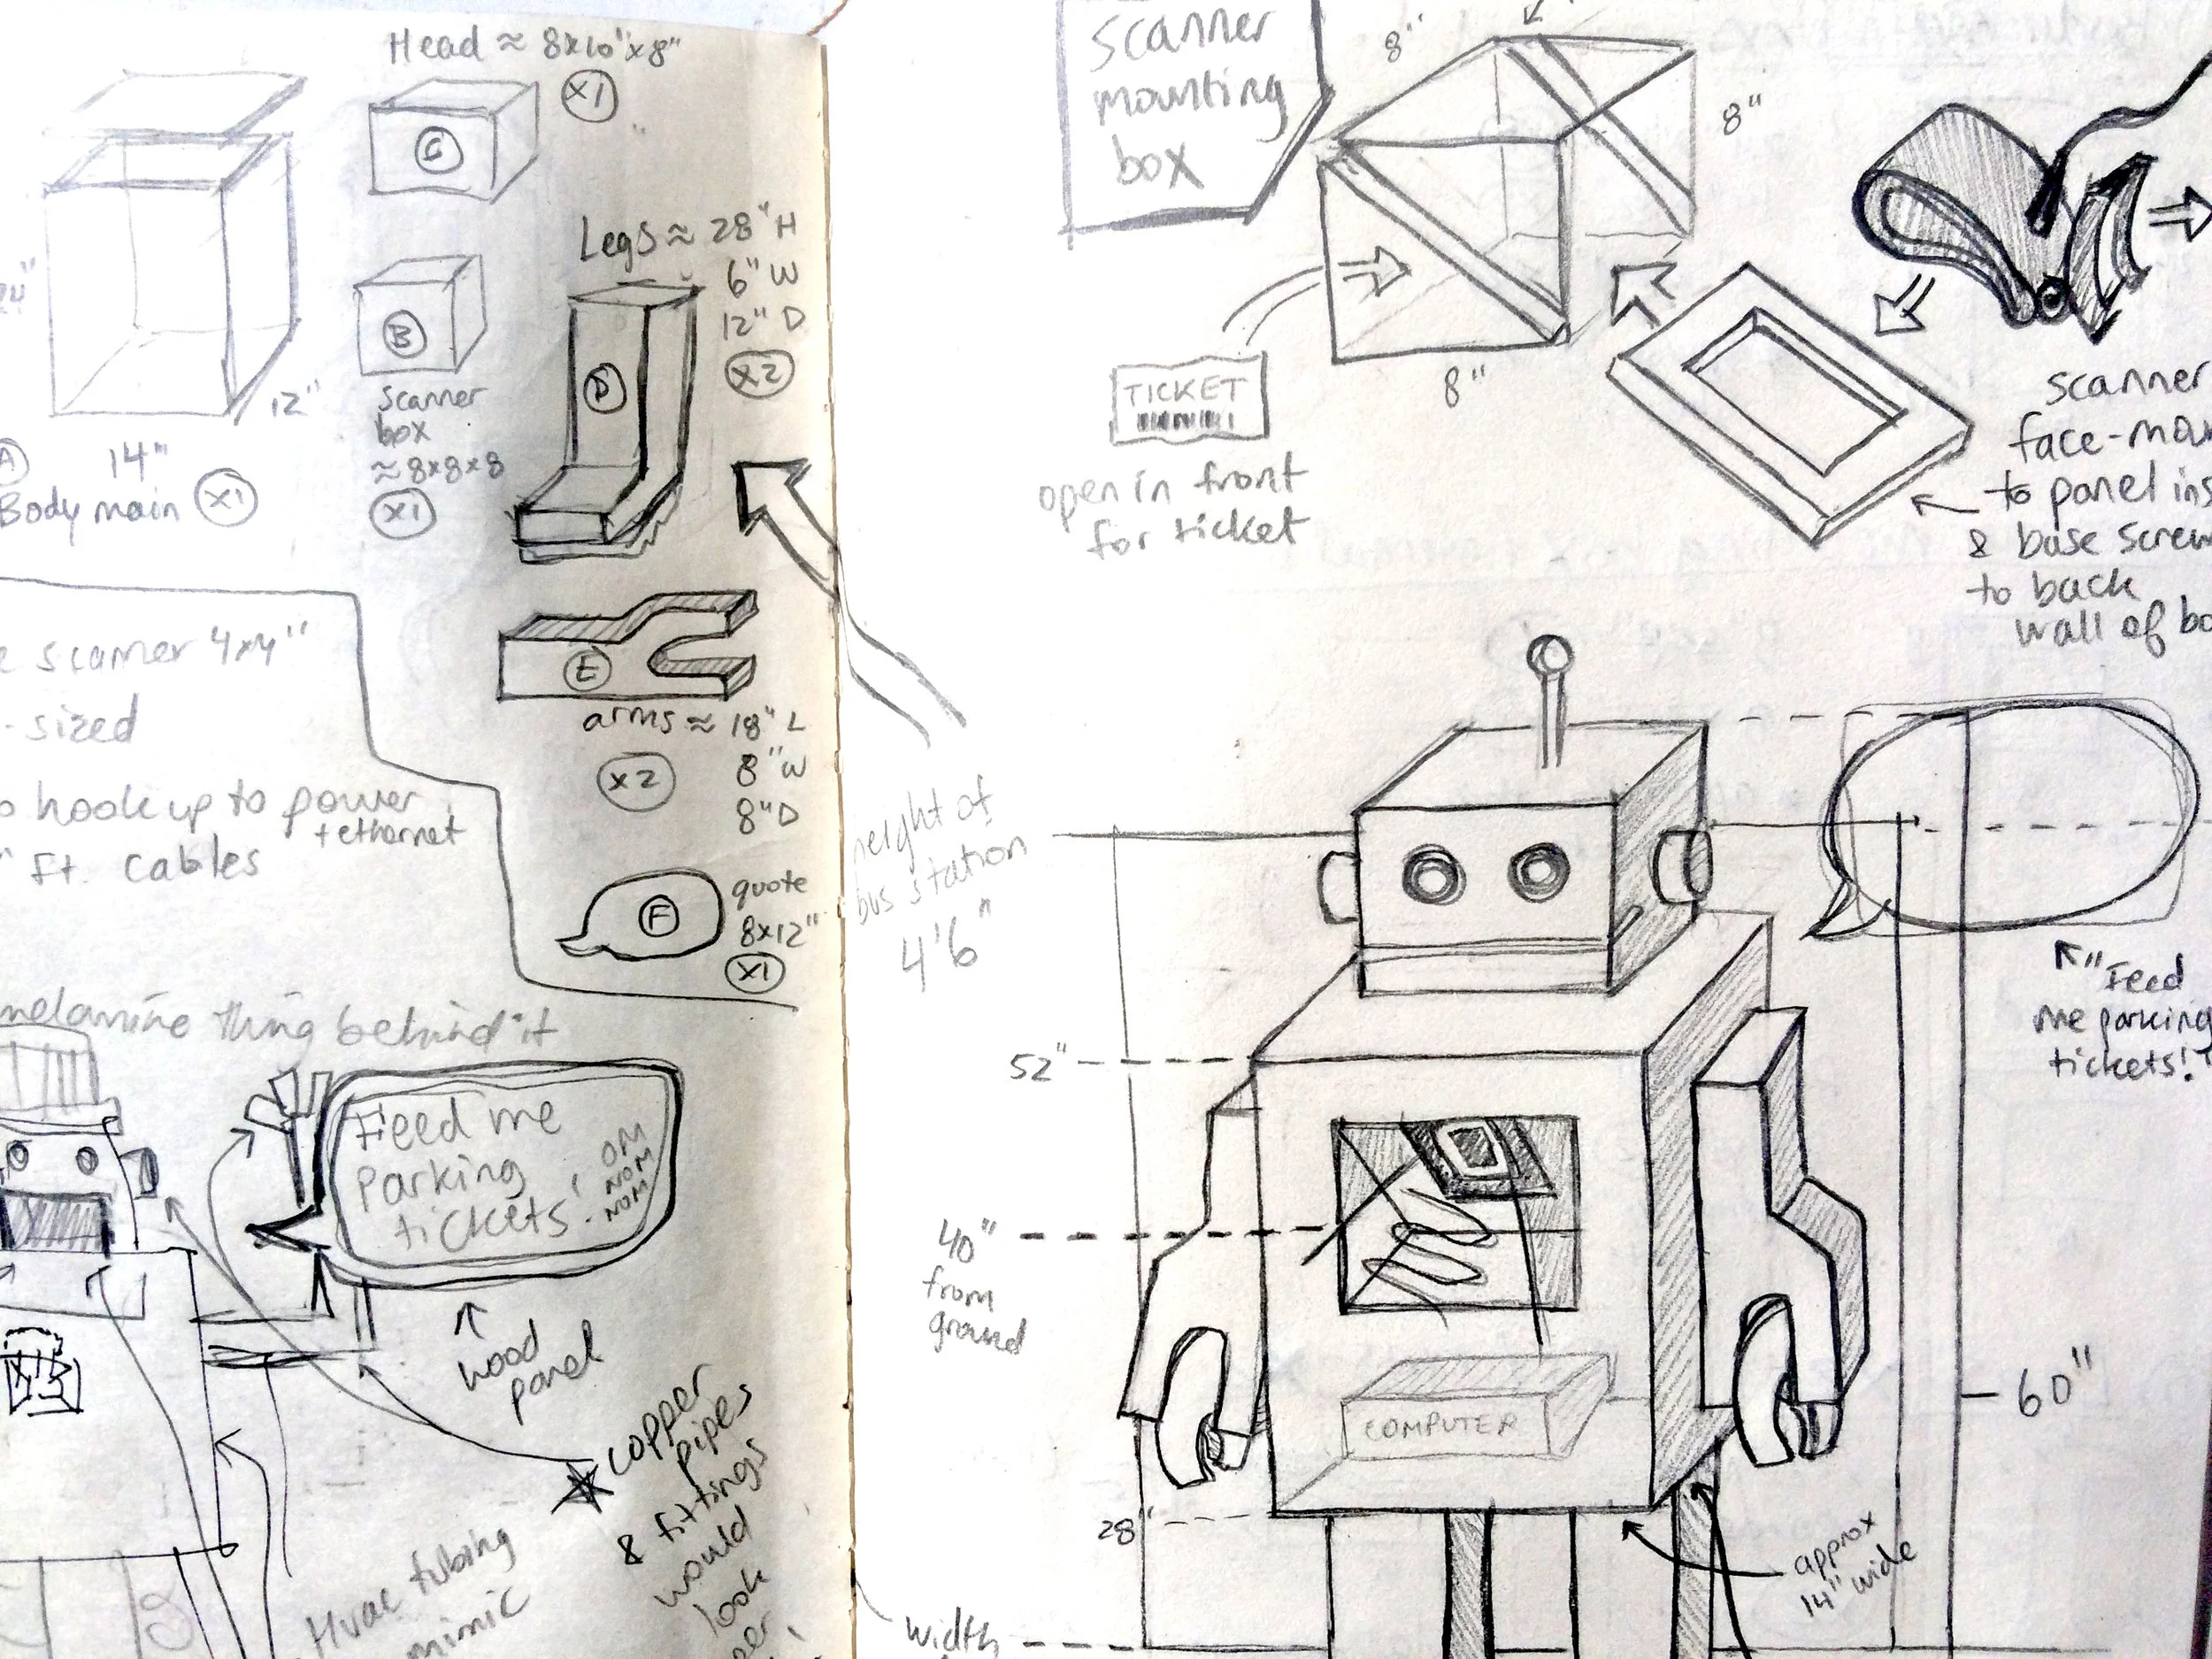 Head ≈ 8x10"x8"
x1
C
Legs ≈ 28" H
6" W
12" D
x2
D
B
scanner
box
≈ 8x8x8
x1
24"
12"
14"
A
Body main x1
E
arms ≈ 18" L
8" W
8" D
x2
F
quote
8x12"
x1
scanner 4x4"
-sized
hook up to power
+ ethernet
ft. cables
melamine thing behind it
Feed me
parking
tickets!
OM
NOM
NOM
wood
panel
copper
pipes
& fittings
would
look
Hvac tubing
mimic
scanner
mounting
box
8"
8"
8"
TICKET
open in front
for ticket
scanner
face-
to panel
& base screw
to back
wall of
height of
bus station
4'6"
"Feed
me parking
tickets!"
52"
40"
from
ground
COMPUTER
60"
28"
approx
14" wide
width